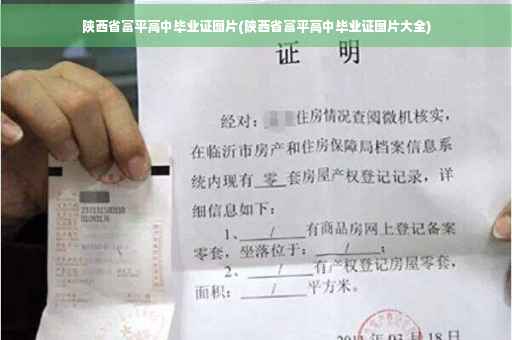 陕西省富平高中毕业证图片(陕西省富平高中毕业证图片大全)
证 明
经对: 住房情况查阅微机核实,
在临沂市房产和住房保障局档案信息系
统内现有 零 套房屋产权登记记录,详
细信息如下:
1、 / 有商品房网上登记备案
零套,坐落位于: / ;
2、 / 有产权登记房屋零套,
面积: / 平方米。
03 月 18 日